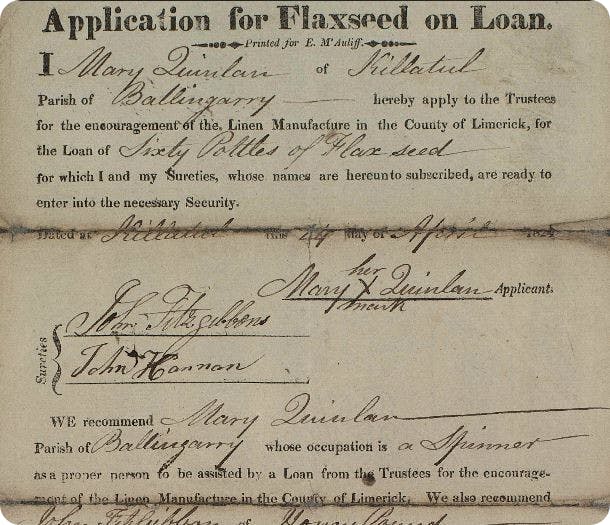 Application for Flaxseed on Loan.
Printed for E. M'Auliff.
I Mary Quinlan of Killatul
Parish of Ballingarry hereby apply to the Trustees
for the encouragement of the Linen Manufacture in the County of Limerick, for
the Loan of Sixty Pottles of Flax seed
for which I and my Sureties, whose names are hereunto subscribed, are ready to
enter into the necessary Security.
Dated at Killatul this 24 day of April 1824
her
Mary X Quinlan Applicant.
mark
Sureties
John Fitzgibbons
John Hannan
WE recommend Mary Quinlan
Parish of Ballingarry whose occupation is a Spinner
as a proper person to be assisted by a Loan from the Trustees for the encourage-
ment of the Linen Manufacture in the County of Limerick. We also recommend
John Fitzgibbon of